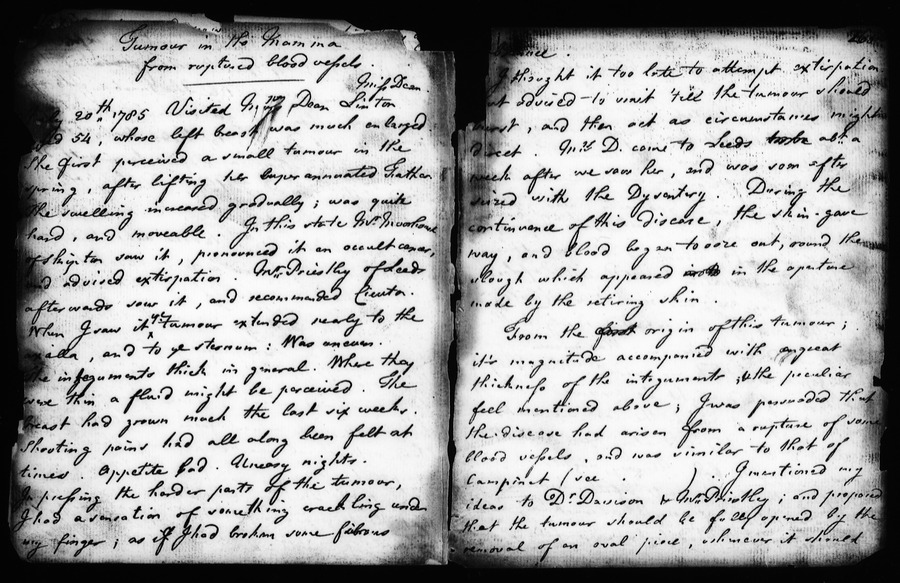 Tumour in the Mamma
from ruptured blood vessels.
Miss Dean
20th 1785 Visited Miss Dean Linton
54, whose left breast was much enlarged
She first perceived a small tumour in the
spring, after lifting her superannuated Father.
The swelling increased gradually; was quite
hard, and moveable. In this state Mr. Moorhouse
of Skipton saw it, pronounced it an occult cancer,
and advised extirpation. Mr. Priestley of Leeds
afterwards saw it, and recommended Cicuta.
When I saw it ye tumour extended nearly to the
axilla, and to ye sternum: Was uneven.
The integuments thick in general. Where they
were thin a fluid might be perceived. The
breast had grown much the last six weeks.
Shooting pains had all along been felt at
times. Appetite bad. Uneasy nights.
In pressing the harder parts of the tumour,
I had a sensation of something crackling under
my finger; as if I had broken some fibrous
I thought it too late to attempt extirpation
but advised to wait 'till the tumour should
burst, and then act as circumstances might
direct. Mrs D. came to Leeds abt. a
week after we saw her, and was soon after
seized with the Dysentery. During the
continuance of this disease, the skin gave
way, and blood began to ooze out, round the
slough which appeared in the aperture
made by the retiring skin.
From the first origin of this tumour;
it's magnitude accompanied with great
thickness of the integuments; & the peculiar
feel mentioned above; I was persuaded that
the disease had arisen from a rupture of some
blood vessels, and was similar to that of
Campinet (see ). I mentioned my
ideas to Dr. Davison & Mr. Priestley; and proposed
that the tumour should be fully opened by the
removal of an oval piece, whenever it should